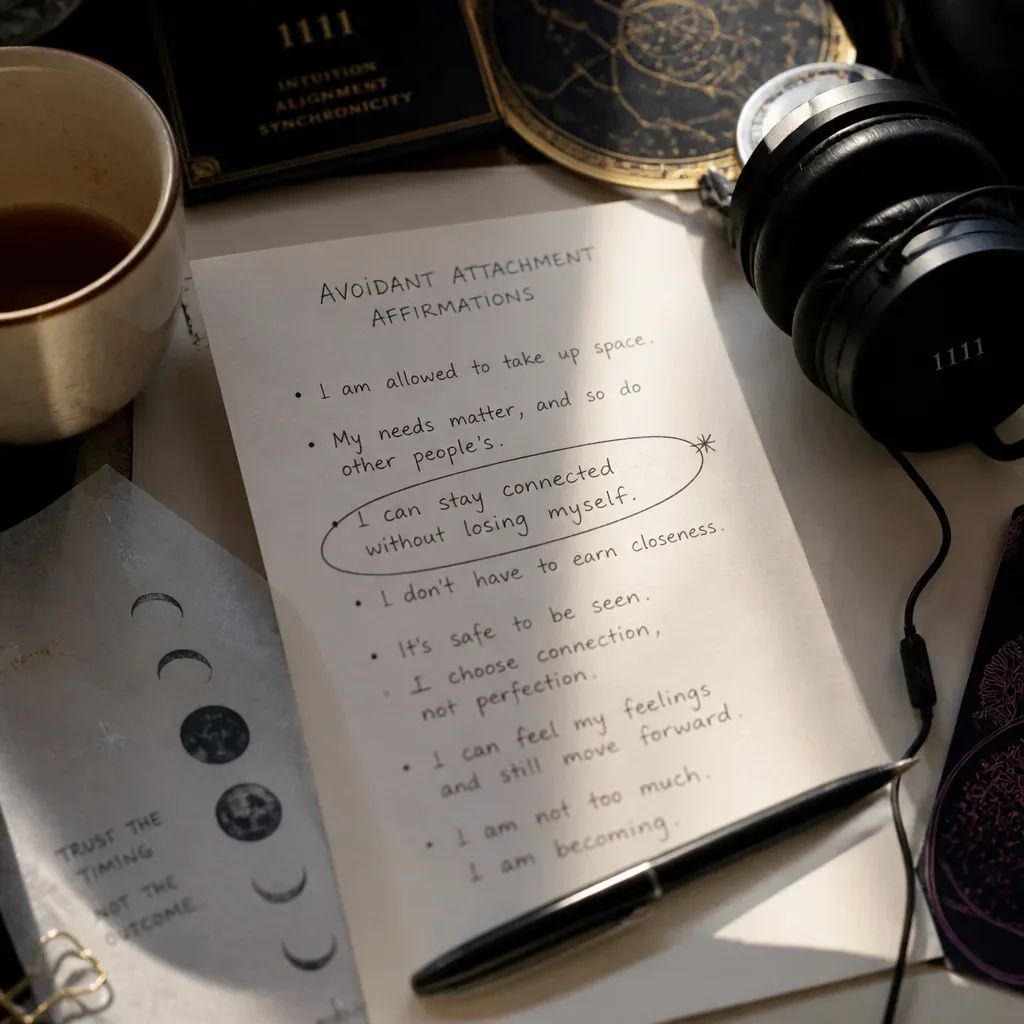 1111
INTUITION
ALIGNMENT
SYNCHRONICITY
1111
AVOIDANT ATTACHMENT
AFFIRMATIONS
• I am allowed to take up space.
• My needs matter, and so do
other people's.
• I can stay connected
without losing myself.
• I don't have to earn closeness.
• It's safe to be seen.
• I choose connection,
not perfection.
• I can feel my feelings
and still move forward.
• I am not too much.
I am becoming.
TRUST THE
TIMING
NOT THE
OUTCOME.